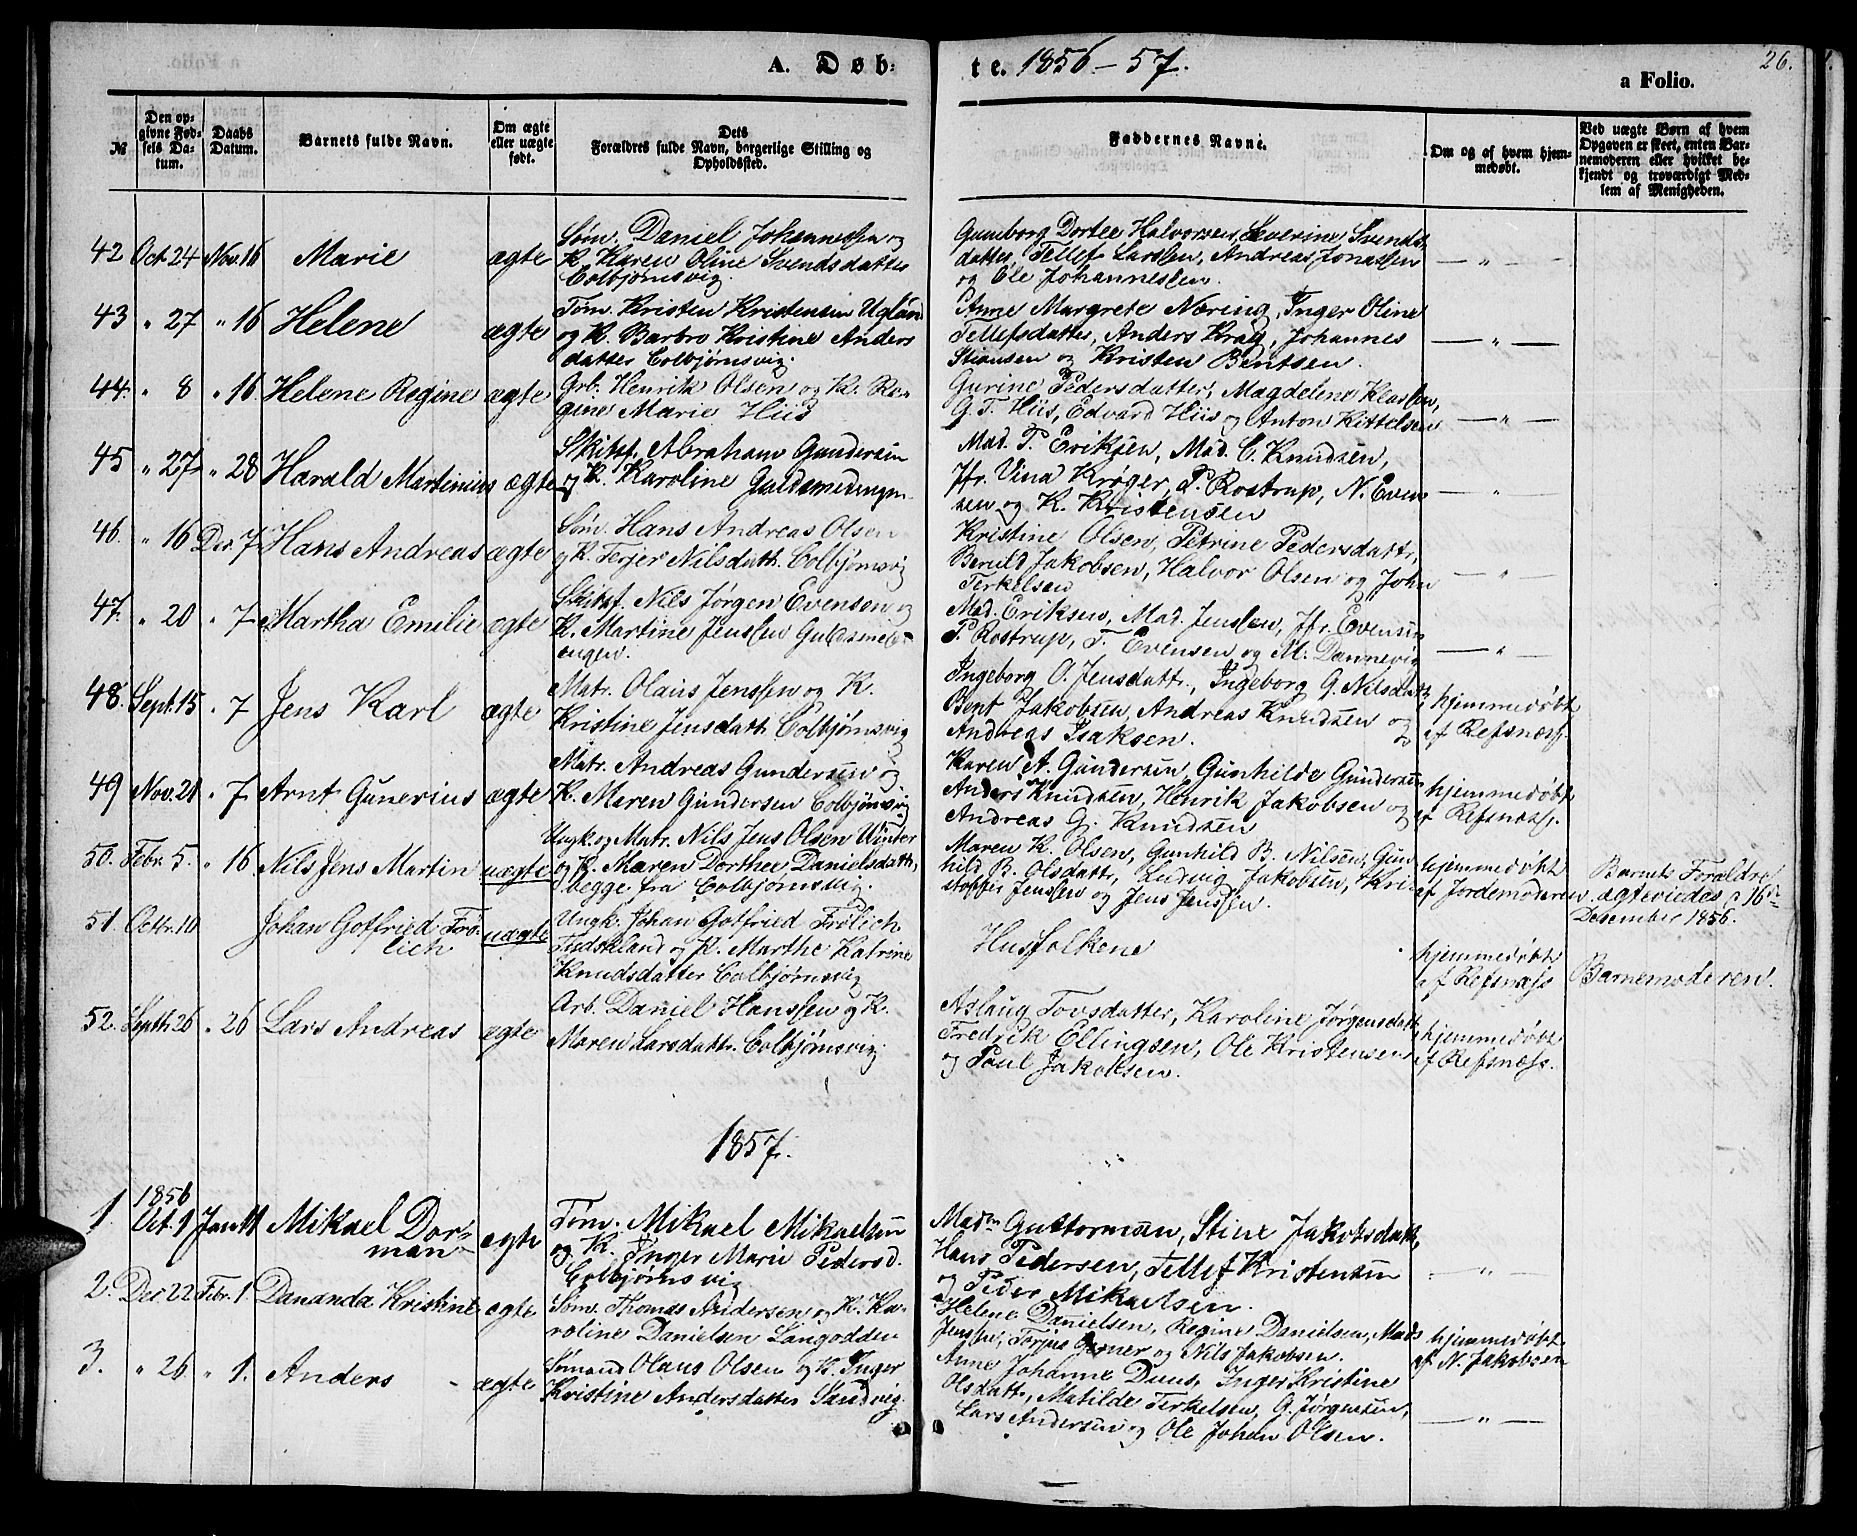 A. Døb-
te. 1856-57.
26.
a Folio.
№
Den op-
givne Fød-
sels Da-
tum.
Daabs
Datum.
Barnets fulde Navn.
Om ægte
eller uægte
født.
Dets
Forældres fulde Navn, borgerlige Stilling og
Opholdssted.
Faddernes Navne.
Om og af hvem hjem-
medøbt.
Ved uægte Børn af hvem
Opgaven er skeet, enten Bar-
nemoderen eller hvilket be-
kjendt og troværdigt Med-
lem af Menigheden.
42 Oct. 24 Nov. 16 Marie ægte
Søm. Daniel Johannessen og
K. Karen Oline Svendsdatter
Colbjørnsvig.
Gunborg Dortee Halvorsen, Severine Svends-
datter, Tellef Larssen, Andreas Jonassen
og Ole Johannessen.
— " —
43 " 27 " 16 Helene ægte
Tøm. Kristen Kristensen Ugland
og K. Barbro Kristine Anders
datter Colbjørnsvig.
Anne Margrete Næring, Inger Oline
Tellefsdatter, Anders Krag, Johannes
Stiansen og Kristen Bentsen.
— " —
44. " 8 " 16. Helene Regine ægte
Grb. Henrik Olsen og K. Re-
gine Marie Hiis
Gurine Pedersdatter, Magdelene Klassen,
G. T. Hiis, Edvard Hiis og Anton Kittelsen
— " —
45 " 27 " 28 Harald Martinius ægte
Skibsf. Abraham Gundersen
og K. Karoline Guldsmedengen
Mad. T. Eriksen, Mad. C. Knudsen,
Jfr. Vina Krøger, P. Rostrup, N. Even-
sen og K. Kristensen
— " —
46. " 16 Dec. 7 Hans Andreas ægte
Søm. Hans Andreas Olsen
og K. Terjer Nilsdatt. Colbjørnsvig
Kristine Olsen, Petrine Pedersdattr,
Beruld Jakobsen, Halvor Olsen og John
Terkelsen
— " —
47. " 20 " 7 Martha Emilie ægte
Skibsf. Nils Jørgen Evensen og
K. Martine Jenssen Guldsmed-
engen.
Mad. Eriksen, Mad. Jenssen, Jfr. Evensen
P. Rostrup, T. Evensen og M. Dannevig
— " —
48. Sept. 15 " 7 Jens Karl ægte
Matr. Olaus Jenssen og K.
Kristine Jensdatt. Colbjørnsvig
Ingeborg O. Jensdattr., Ingeborg G. Nilsdatt.
Bent Jakobsen, Andreas Knudsen og
Andreas Isaksen.
hjemmedøbt
af Refsnæss.
49 Nov. 21 " 7 Arnt Gunerius ægte
Matr. Andreas Gundersen og
K. Maren Gundersen Colbjønsvig
Karen A. Gundersen, Gunhilde Gundersen
Anders Knudsen, Henrik Jakobsen og
Andreas G. Knudsen
hjemmedøbt
af Refsnæss.
50. Febr. 5. " 16 Nils Jens Martin uægte
Ungk. og Matr. Nils Jens Olsen Winter
og P. Maren Dorthee Danielsdatt.,
begge fra Colbjørnsvig.
Maren K. Olsen, Gunhild B. Nilsen, Gun-
hild B. Olsdattr, Ludvig Jakobsen, Kri-
stoffer Jenssen og Jens Jenssen.
hjemmedøbt
af Jordemoderen
Barnets Foraldre
ægteviedes 16de
Desember 1856.
51. Octbr. 10 Johan Gotfried Frø-
lich uægte
Ungk. Johan Gotfried Frølich
Tydskland og P. Marthe Katrine
Knudsdatter Colbjørnsvig
Husfolkene
hjemmedøbt
af Refsnæss
Barnemoderen.
52. Septb. 26 " 26 Lars Andreas ægte
Arb. Daniel Hanssen og K.
Maren Larsdattr. Colbjørnsvig.
Aslaug Tovsdatter, Karoline Jørgensdatt.
Fredrik Ellingsen, Ole Kristensen
og Poul Jakobsen.
hjemmedøbt
af Refsnæss.
1857.
1856
1 Oct. 9 Jan. 11 Mikael Dor-
man ægte
Tøm. Mikael Mikaelsen
og K. Inger Marie Pedersd.
Colbjørnsvig
Madm Guttormsen, Stine Jakobsdatt,
Hans Pedersen, Tellef Kristensen
og Peder Mikaelsen.
— " —
2. Dec. 22 Febr. 1. Dananda Kristine ægte
Søm. Thomas Andersen og K. Ka-
roline Danielsen Langodden
Helene Danielsen, Regine Danielsen, Mads
Jenssen, Torjus Garner og Nils Jakobsen.
hjemmedøbt
af N. Jakobsen
3. " 26 " 1. Anders ægte
Sømand Olaus Olsen og K. Inger
Kristine Andersdatter Sandvig
Anne Johanne Duus, Inger Kristine
Olsdattr, Matilde Terkelsen, G. Jørgensen,
Lars Andersen og Ole Johan Olsen.
— " —